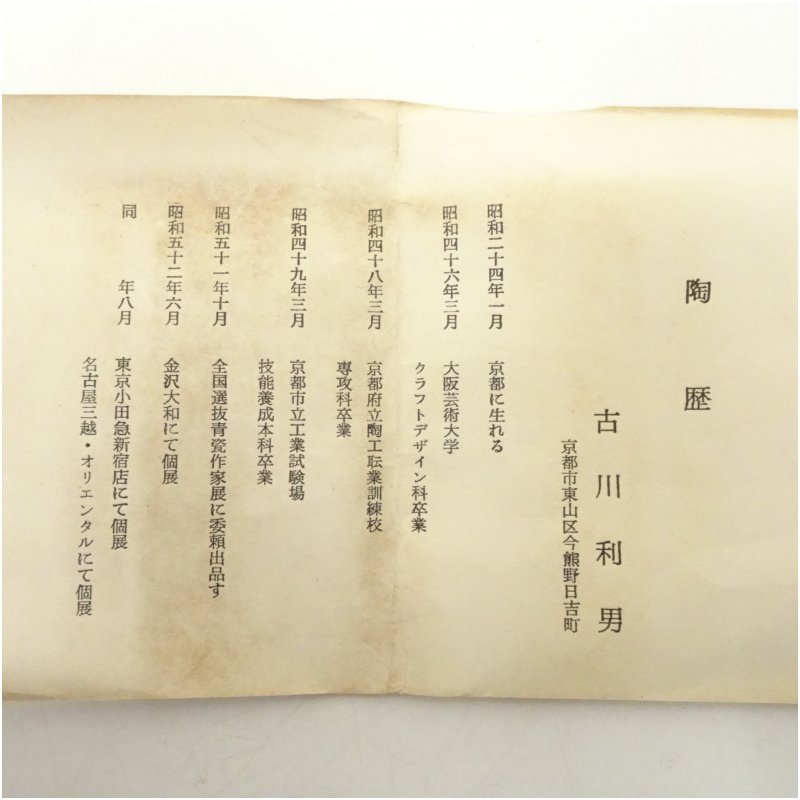 陶歴
古川利男
京都市東山区今熊野日吉町
昭和二十四年一月　京都に生れる
昭和四十六年三月　大阪芸術大学
クラフトデザイン科卒業
昭和四十八年三月　京都府立陶工耺業訓練校
専攻科卒業
昭和四十九年三月　京都市立工業試験場
技能養成本科卒業
昭和五十一年十月　全国選抜青瓷作家展に委頼出品す
昭和五十二年六月　金沢大和にて個展
同　年八月　東京小田急新宿店にて個展
名古屋三越・オリエンタルにて個展